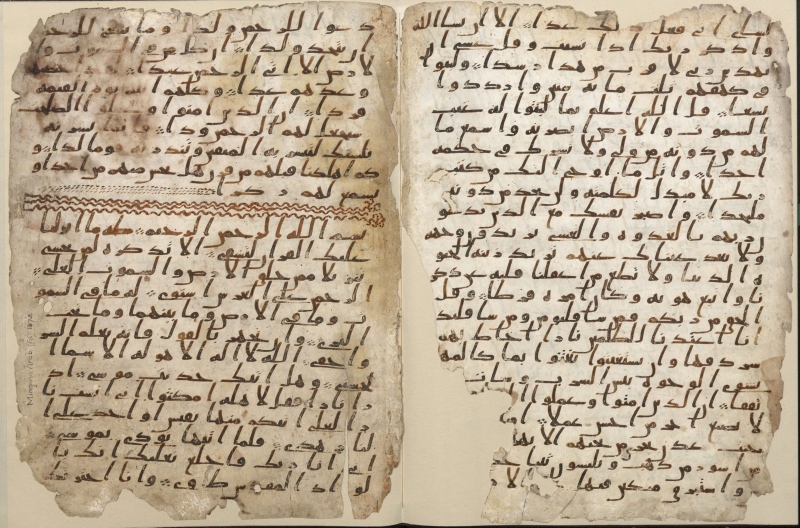 لشاي اني فعل ذلك غدا الا ان يشا الله
واذكر ربك اذا نسيت وقل عسى ان
يهدين ربي لاقرب من هذا رشدا ولبثوا
في كهفهم ثلث مايه سنين وازدادوا
تسعا قل الله اعلم بما لبثوا له غيب
السموت والارض ابصر به واسمع ما
لهم من دونه من ولي ولا يشرك في حكمه
احدا واتل ما اوحي اليك من كتب
ربك لا مبدل لكلمته ولن تجد من دونه
ملتحدا واصبر نفسك مع الذين يدعون
ربهم بالغدوه والعشي يريدون وجهه
ولا تعد عيناك عنهم تريد زينه الحيو
ه الدنيا ولا تطع من اغفلنا قلبه عن ذكر
نا واتبع هويه وكان امره فرطا وقل
الحق من ربكم فمن شا فليومن ومن شا فليكفر
انا اعتدنا للظلمين نارا احاط بهم
سردقها وان يستغيثوا يغثوا بما كالمهل
يشوي الوجوه بئس الشرب وسات
مرتفقا ان الذين امنوا وعملوا
لا نضيع اجر من احسن عملا
جنت عدن تجري من تحتهم الانهر
من اسور من ذهب ويلبسون ثيابا
واستبرق متكين فيها
دعوا للرحمن ولدا وما ينبغي للرحمن
ان يتخذ ولدا ان كل من في السموت وا
لارض الا اتي الرحمن عبدا لقد احصهم
وعدهم عدا وكلهم اتيه يوم القيمه
فردا ان الذين امنوا وعملوا الصلحت
سيجعل لهم الرحمن ودا فانما يسرنه
بلسنك لتبشر به المتقين وتنذر به قوما لدا و
كم اهلكنا قبلهم من قرن هل تحس منهم من احد او
تسمع لهم ركزا
بسم الله الرحمن الرحيم طه ما انزلنا
عليك القران لتشقى الا تذكره لمن يخشى
تنزيلا ممن خلق الارض والسموت العلى
الرحمن على العرش استوى له ما في السمو
ت وما في الارض وما بينهما وما تحت
الثرى وان تجهر بالقول فانه يعلم السر
واخفى الله لا اله الا هو له الاسما ا
لحسنى وهل اتيك حديث موسى اذ
را نارا فقل لاهله امكثوا اني انست نا
را لعلي اتيكم منها بقبس او اجد على ا
لنار هدى فلما اتيها نودي يموسى
اني انا ربك فاخلع نعليك انك با
لواد المقدس طوى وانا اخترتك